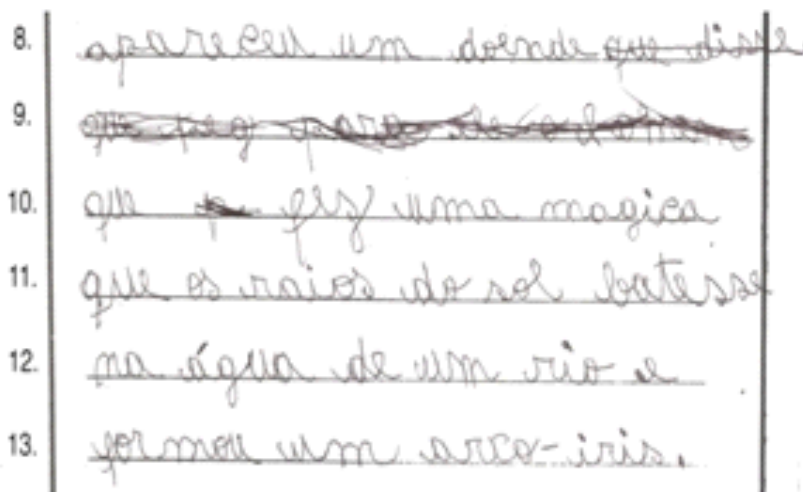 8. apareceu um doende que disse
9.
10. que fis uma magica
11. que os raios do sol batesse
12. na água de um rio e
13. formou um arco-iris.